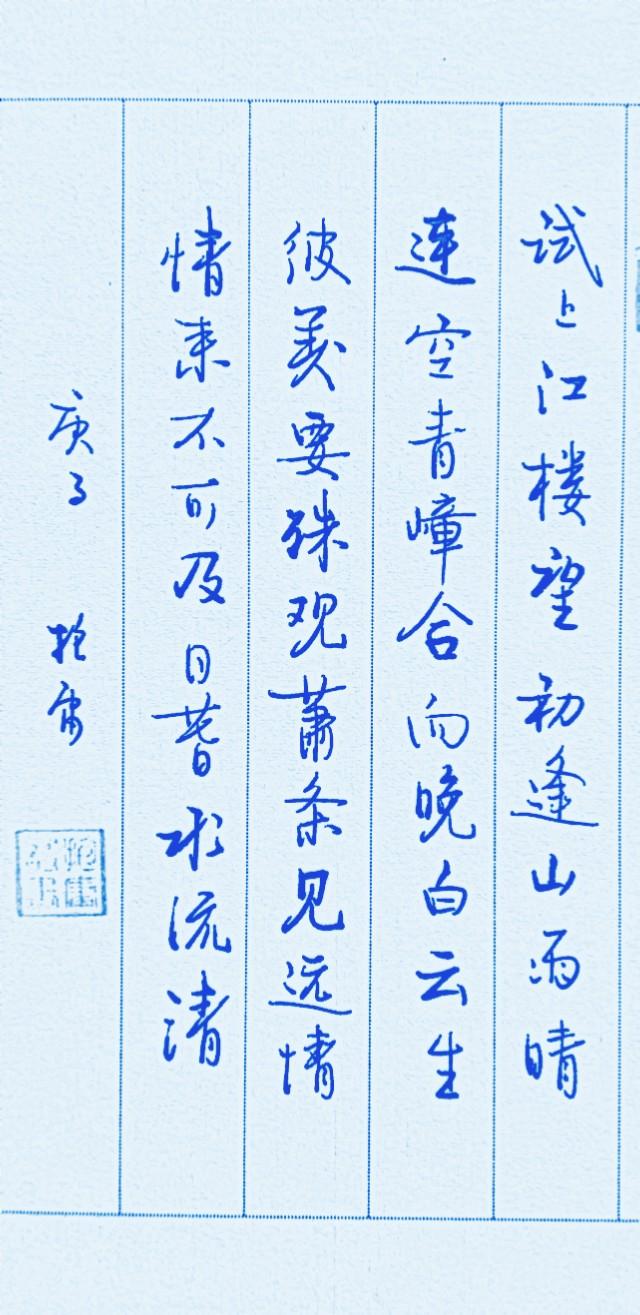 试上江楼望初逢山雨晴
连空青嶂合向晚白云生
彼美要殊观萧条见远情
情来不可及日暮水流清
庚子